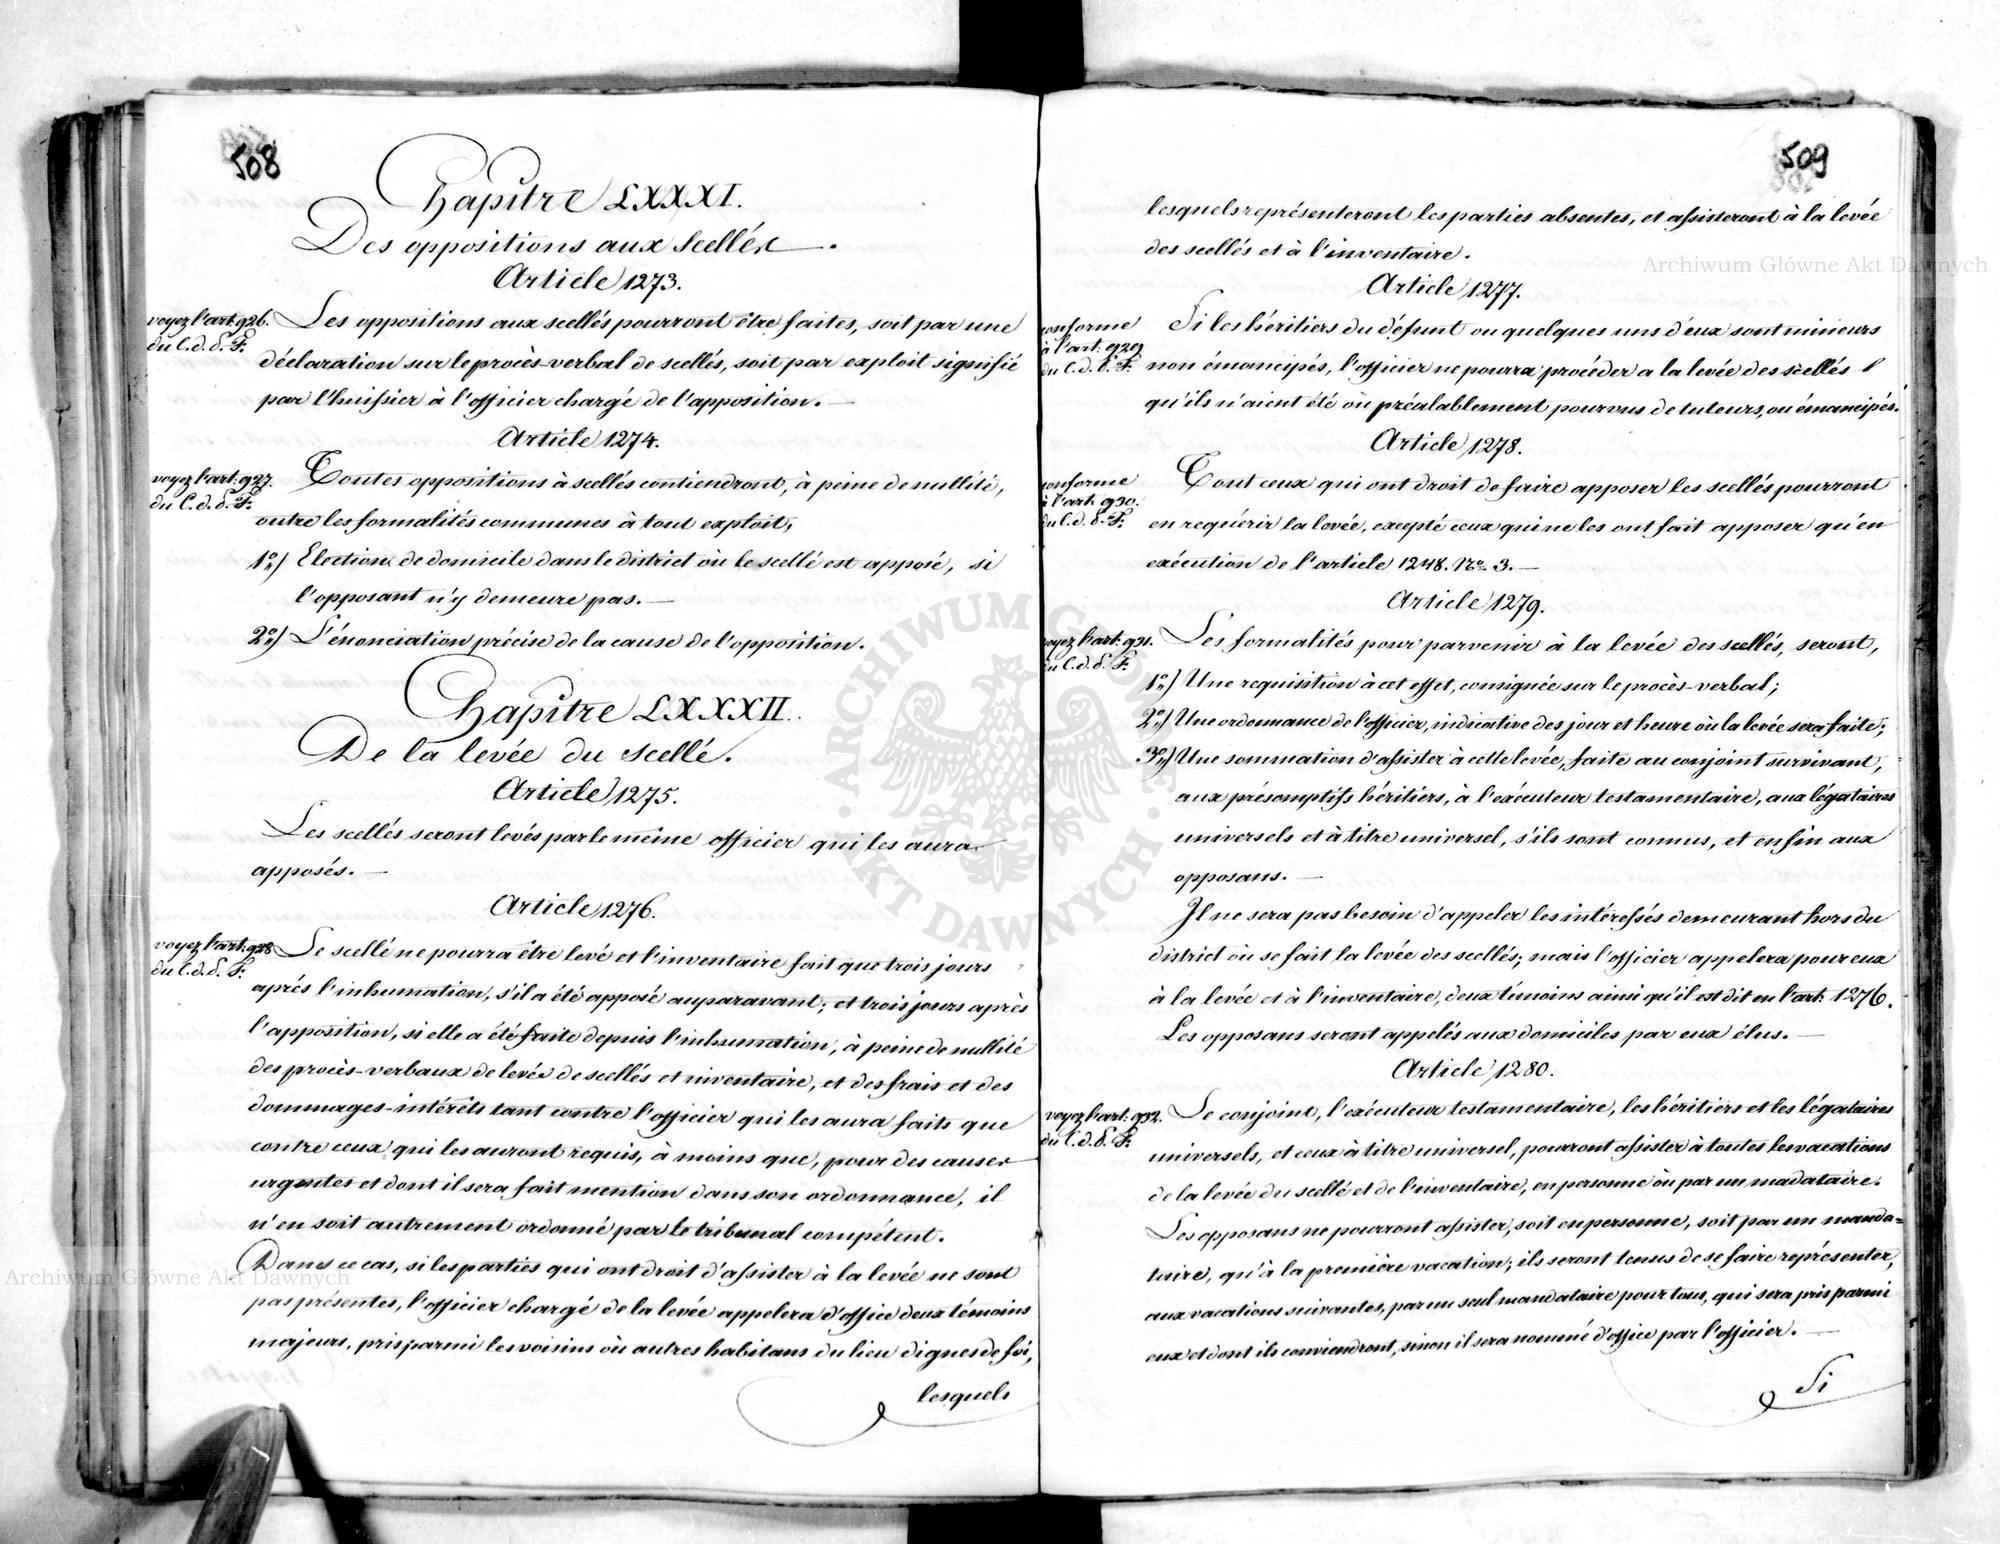 508
Chapitre LXXXI.
Des oppositions aux Scellés.
Article 1273.
voyez l'art: 926.
du C. d. P. F.
Les oppositions aux scellés pourront être faites, soit par une
déclaration sur le procès-verbal de scellés, soit par exploit signifié
par l'huissier à l'officier chargé de l'apposition. —
Article 1274.
voyez l'art: 927.
du C. d. P. F.
Toutes oppositions à scellés contiendront, à peine de nullité,
outre les formalités communes à tout exploit,
1º) Election de domicile dans le district où le scellé est apposé, si
l'opposant n'y demeure pas. —
2º) L'énonciation précise de la cause de l'opposition.
Chapitre LXXXII.
De la levée du scellé.
Article 1275.
Les scellés seront levés par le même officier qui les aura
apposés. —
Article 1276.
voyez l'art: 928
du C. d. P. F.
Le scellé ne pourra être levé et l'inventaire fait que trois jours
aprés l'inhumation, s'il a été apposé auparavant; et trois jours après
l'apposition, si elle a été faite depuis l'inhumation, à peine de nullité
des procès-verbaux de levée de scellés et inventaire, et des frais et des
dommages-intérêts tant contre l'officier qui les aura faits que
contre ceux qui les auront requis, à moins que, pour des causes
urgentes et dont il sera fait mention dans son ordonnance, il
n'en soit autrement ordonné par le tribunal compétent.
Dans ce cas, si les parties qui ont droit d'assister à la levée ne sont
pas présentes, l'officier chargé de la levée appelera d'office deux témoins
majeurs, pris parmi les voisins où autres habitans du lieu dignes de foi,
lesquels
509
lesquels représenteront les parties absentes, et assisteront à la levée
des scellés et à l'inventaire.
Article 1277.
conforme
à l'art: 929
du C. d. P. F.
Si les héritiers du défunt ou quelques uns d'eux sont mineurs
non émancipés, l'officier ne pourra procéder a la levée des scellés
qu'ils n'aient été où préalablement pourvus de tuteurs, ou émancipés.
Article 1278.
conforme
à l'art: 930.
du C. d. P. F.
Tout ceux qui ont droit de faire apposer les scellés pourront
en requérir la levée, excepté ceux qui ne les ont fait apposer qu'en
exécution de l'article 1248. No 3. —
Article 1279.
voyez l'art: 931.
du C. d. P. F.
Les formalités pour parvenir à la levée des scellés, seront,
1º) Une requisition à cet effet, consignée sur le procès-verbal;
2º) Une ordonnance de l'officier, indicative des jour et heure où la levée sera faite;
3º) Une sommation d'assister à cette levée, faite au conjoint survivant,
aux présomptifs héritiers, à l'exécuteur testamentaire, aux légataires
universels et à titre universel, s'ils sont connus, et enfin aux
opposans. —
Il ne sera pas besoin d'appeler les intéressés demeurant hors du
district où se fait la levée des scellés; mais l'officier appelera pour eux
à la levée et à l'inventaire, deux témoins ainsi qu'il est dit en l'art: 1276.
Les opposans seront appelés aux domiciles par eux élus. —
Article 1280.
voyez l'art: 932.
du C. d. P. F.
Le conjoint, l'exécuteur testamentaire, les héritiers et les légataires
universels, et ceux à titre universel, pourront assister à toutes les vacations
de la levée du scellé et de l'inventaire, en personne où par un madataire.
Les opposans ne pourront assister, soit en personne, soit par un manda=
taire, qu'à la première vacation; ils seront tenus de se faire représenter,
aux vacations suivantes, par un seul mandataire pour tous, qui sera pris parmi
eux et dont ils conviendront, sinon il sera nommé d'office par l'officier. —
Si
Archiwum Główne Akt Dawnych
Archiwum Główne Akt Dawnych
ARCHIWUM GŁÓWNE AKT DAWNYCH